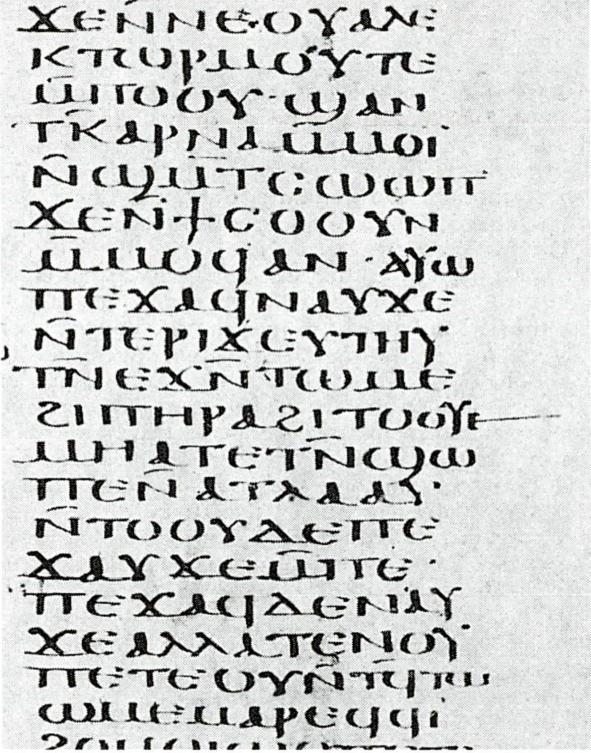 ϫⲉⲛ̄ⲛⲉⲟⲩⲁⲗⲉ
ⲕⲧⲱⲣⲙⲟⲩⲧⲉ
ⲙ̄ⲡⲟⲟⲩ·ϣⲁⲛ
ⲧⲕ̄ⲁⲣⲛⲁⲙ̄ⲙⲟⲓ̈
ⲛ̄ϣⲙ̄ⲧⲥⲱⲱⲡ
ϫⲉⲛ̄ϯⲥⲟⲟⲩⲛ
ⲙ̄ⲙⲟϥⲁⲛ·ⲁⲩⲱ
ⲡⲉϫⲁϥⲛⲁⲩϫⲉ
ⲛ̄ⲧⲉⲣⲓϫⲉⲩⲧⲏⲩ
ⲧⲛ̄ⲉϫⲛ̄ⲧⲱⲙⲉ
ϩⲓⲡⲏⲣⲁϩⲓⲧⲟⲟⲩⲉ
ⲙⲏⲁⲧⲉⲧⲛ̄ϣⲱ
ⲡⲉⲛ̄ⲁⲧⲗⲁⲁⲩ·
ⲛ̄ⲧⲟⲟⲩⲇⲉⲡⲉ
ϫⲁⲩϫⲉⲙ̄ⲡⲉ·
ⲡⲉϫⲁϥⲇⲉⲛⲁⲩ
ϫⲉⲁⲗⲗⲁⲧⲉⲛⲟⲩ
ⲡⲉⲧⲉⲟⲩⲛ̄ⲧϥ̄ⲧⲱ
ⲱⲙⲉⲙⲁⲣⲉϥϥⲓ